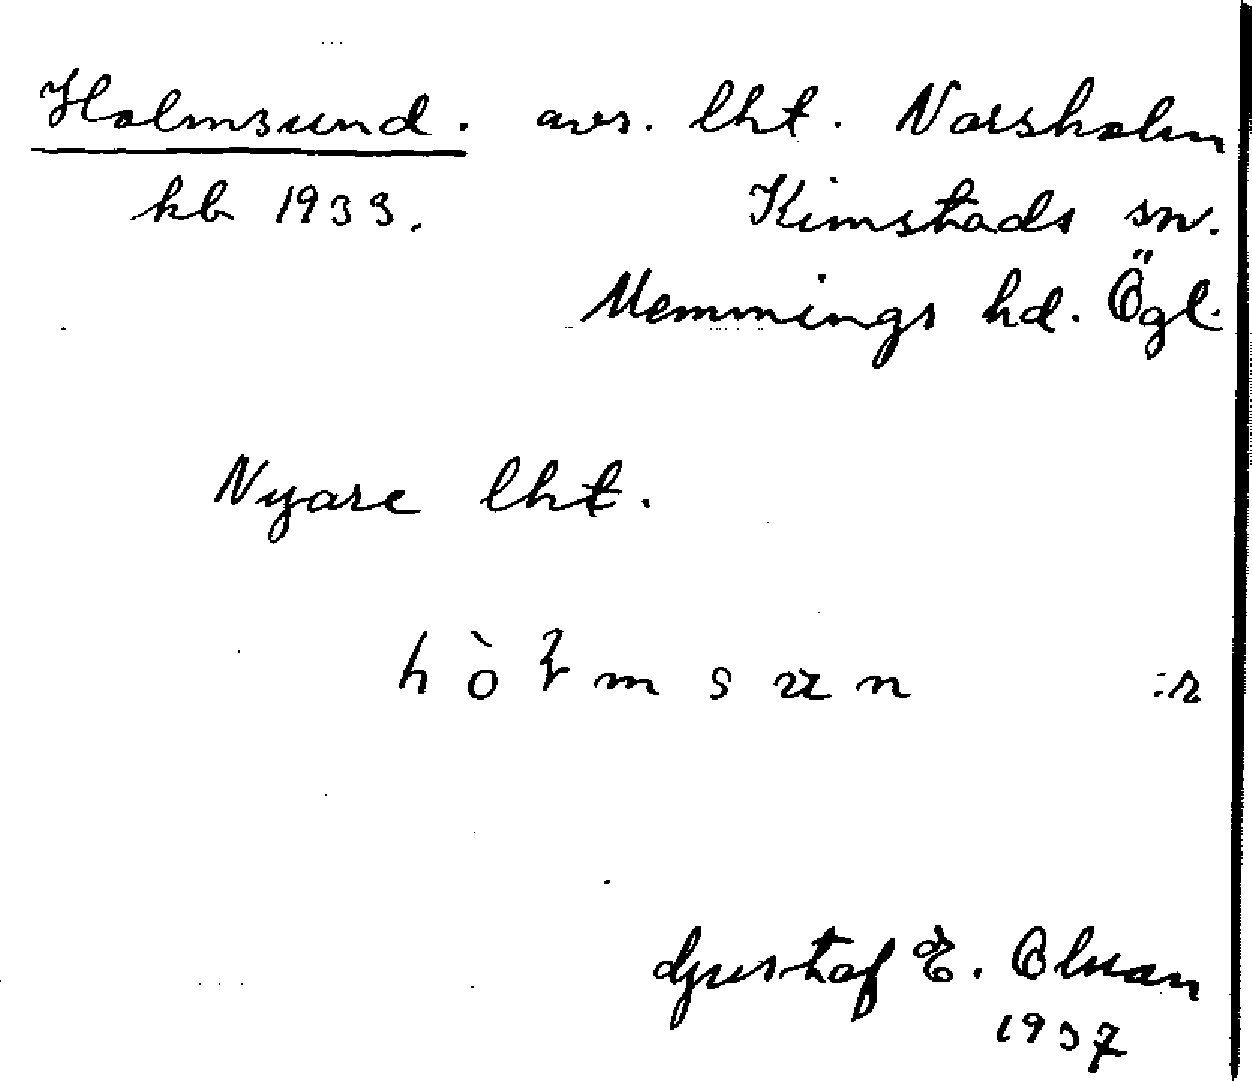 Holmsund. avs. lht. Norsholm
kb 1933. Kimstads sn.
Memmings hd. Ögl.
Nyare lht.
Gustaf E.
1937